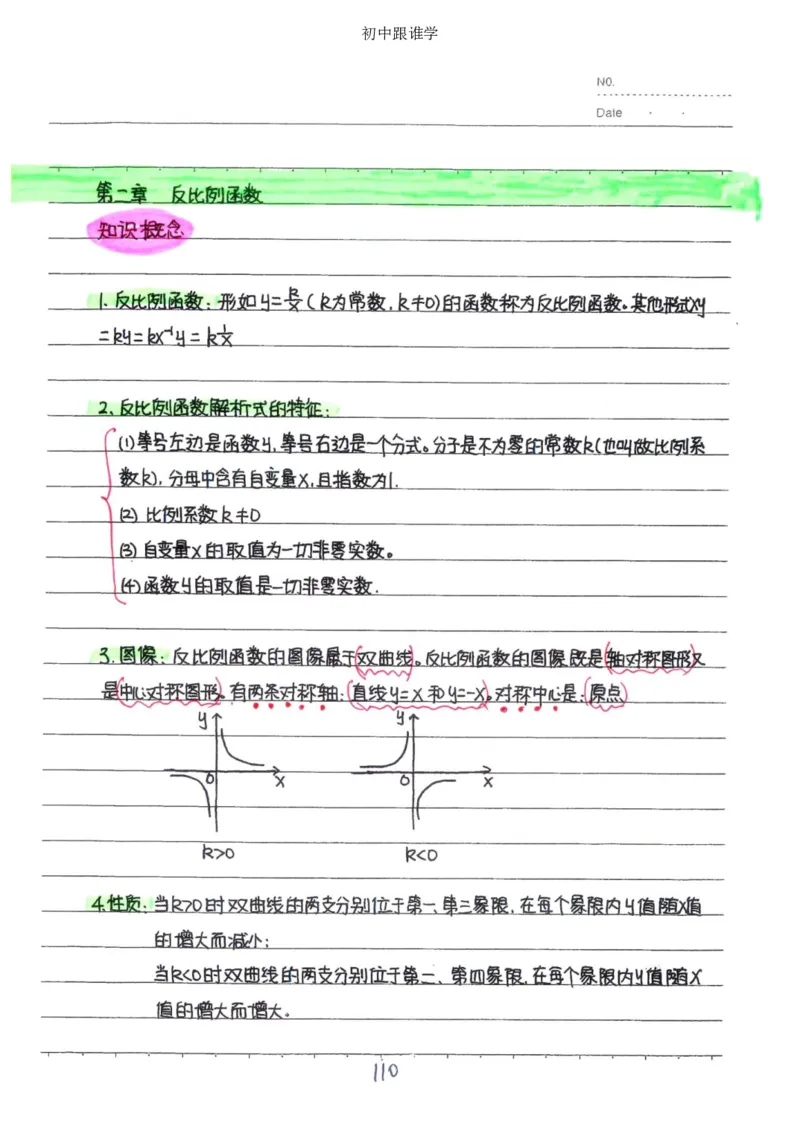 初中跟谁学
NO.
Date
第二章 反比例函数
知识概念
1. 反比例函数：形如y=k/x(k为常数,k≠0)的函数称为反比例函数。其他形式xy
=ky=kx⁻¹y=k1/x
2、反比例函数解析式的特征：
(1)等号左边是函数y,等号右边是一个分式。分子是不为零的常数k(也叫做比例系
数k),分母中含有自变量x,且指数为1.
(2) 比例系数k≠0
(3) 自变量x的取值为一切非零实数。
(4)函数y的取值是一切非零实数.
3.图像：反比例函数的图像属于双曲线。反比例函数的图像既是轴对称图形又
是中心对称图形。有两条对称轴：直线y=x和y=-x。对称中心是：原点
y y
0 x 0 x
k>0 k<0
4.性质：当k>0时双曲线的两支分别位于第一、第三象限,在每个象限内y值随x值
的增大而减小；
当k<0时双曲线的两支分别位于第二、第四象限,在每个象限内y值随x
值的增大而增大。
110